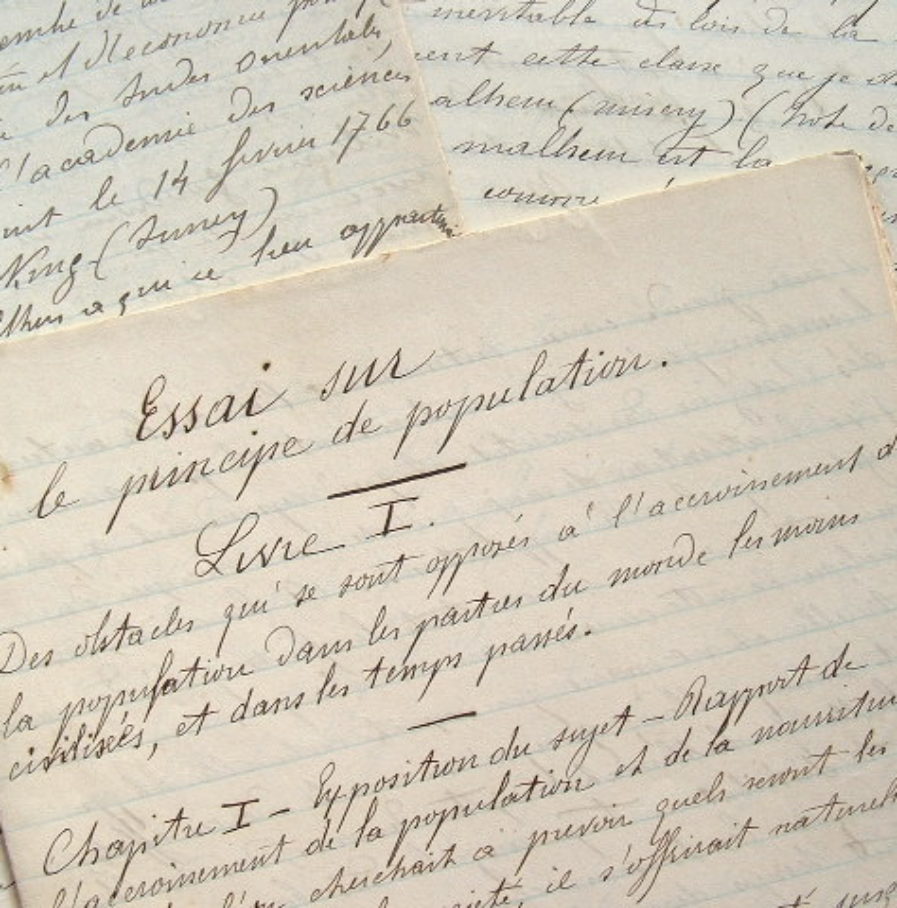 et d'économie
des Indes orientales,
l'académie des sciences
le 14 février 1766
King (Surrey)
a qui ce lieu
inévitable des lois de la
cette classe que je
(misery) (Note de
malheur est la
comme
Essai sur
le principe de population.
Livre I.
Des obstacles qui se sont opposés à l'accroissement d
la population dans les parties du monde les moins
civilisées, et dans les temps passés.
Chapitre I – Exposition du sujet – Rapport de
l'accroissement de la population et de la nourriture
cherchait à prévoir quels seront les
il s'offrirait naturell